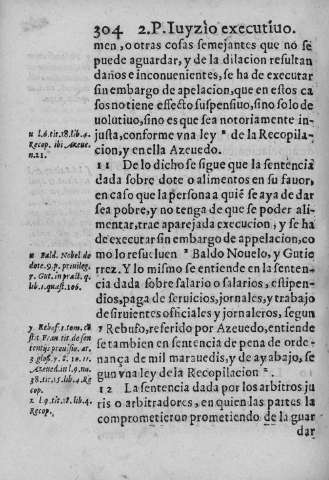 304 2.P. Iuyzio executiuo.
men, o otras cosas semejantes que no se
puede aguardar, y de la dilacion resultan
daños e inconuenientes, se ha de executar
sin embargo de apelacion, que en estos ca
sos no tiene effecto suspensiuo, sino solo de
uolutiuo, sino es que sea notoriamente in-
justa, conforme vna ley u de la Recopila-
cion, y en ella Azeuedo.
11 De lo dicho se sigue que la sentencia
dada sobre dote o alimentos en su fauor,
en caso que la persona a quié se aya de dar
sea pobre, y no tenga de que se poder ali-
mentar, trae aparejada execucion, y se ha
de executar sin embargo de appelacion, co
mo lo resueluen x Baldo Nouelo, y Gutie
rrez. Y lo mismo se entiende en la senten-
cia dada sobre salario o salarios, estipen-
dios, paga de seruicios, jornales, y trabajo
de siruientes officiales y jornaleros, segun
y Rebufo, referido por Azeuedo, entiende
se tambien en sentencia de pena de orde-
nança de mil marauedis, y de ay abajo, se
gun vna ley de la Recopilacion z.
12 La sentencia dada por los arbitros ju
ris o arbitradores, en quien las partes la
comprometieron prometiendo de la guar
dar
u l.6.tit.18.lib.4.
Recop. ibi Azeue.
n.21.
x Bald. Nobel. de
dote. 9. p. priuileg.
7. Gut. in pract. q.
lib.1. quæst.106.
y Rebuf. 1. tom. cō
stit Fran tit. de sen
tentijs prouisio. ar.
3. glos.
Azeued. in l.9. nu.
38. tit.15. lib.4. Re
cop.
z l.9. tit.18. lib.4.
Recop.